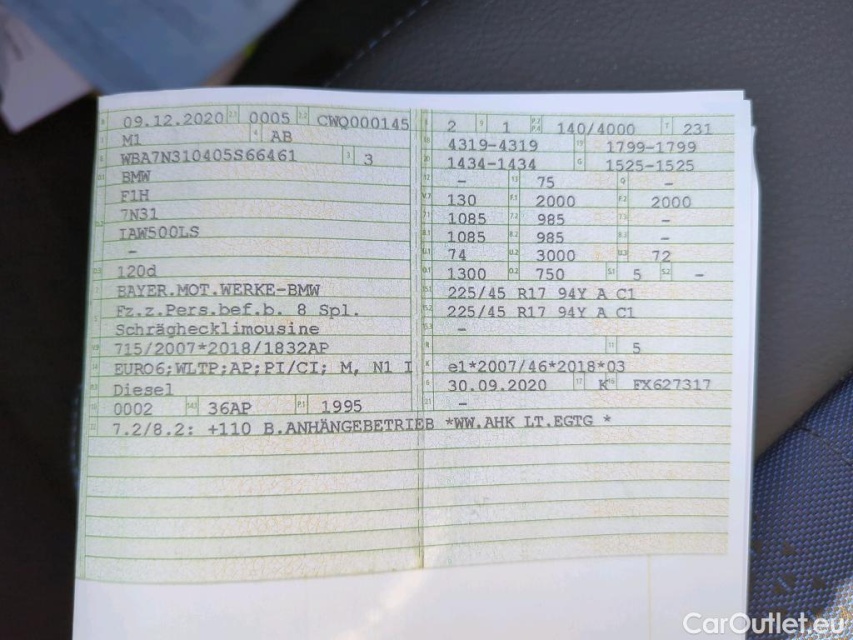 09.12.2020 0005 CWQ000145
M1 AB
WBA7N310405S66461 3
BMW
F1H
7N31
IAW500LS
-
120d
BAYER.MOT.WERKE-BMW
Fz.z.Pers.bef.b. 8 Spl.
Schräghecklimousine
715/2007*2018/1832AP
EURO6;WLTP;AP;PI/CI; M, N1 I
Diesel
0002 36AP 1995
2 1 140/4000 231
4319-4319 1799-1799
1434-1434 1525-1525
- 75 -
130 2000 2000
1085 985 -
1085 985 -
74 3000 72
1300 750 5 -
225/45 R17 94Y A C1
225/45 R17 94Y A C1
-
5
e1*2007/46*2018*03
30.09.2020 K FX627317
-
7.2/8.2: +110 B.ANHÄNGEBETRIEB *WW.AHK LT.EGTG *
CarOutlet.eu